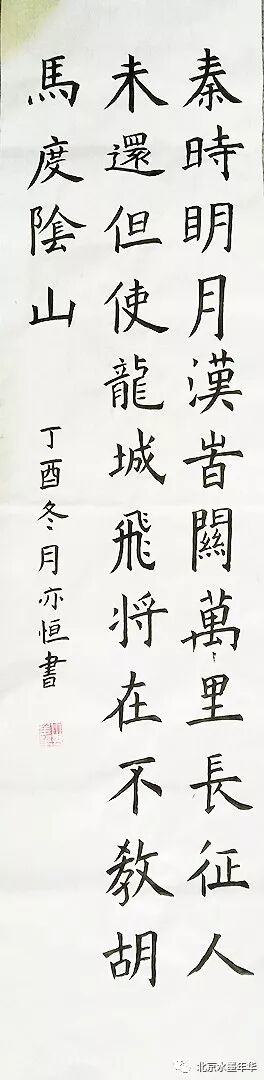 秦時眀月漢旹關萬里長征人
未還但使龍城飛将在不教胡
馬度陰山
丁酉冬月亦恒書
北京水墨年华